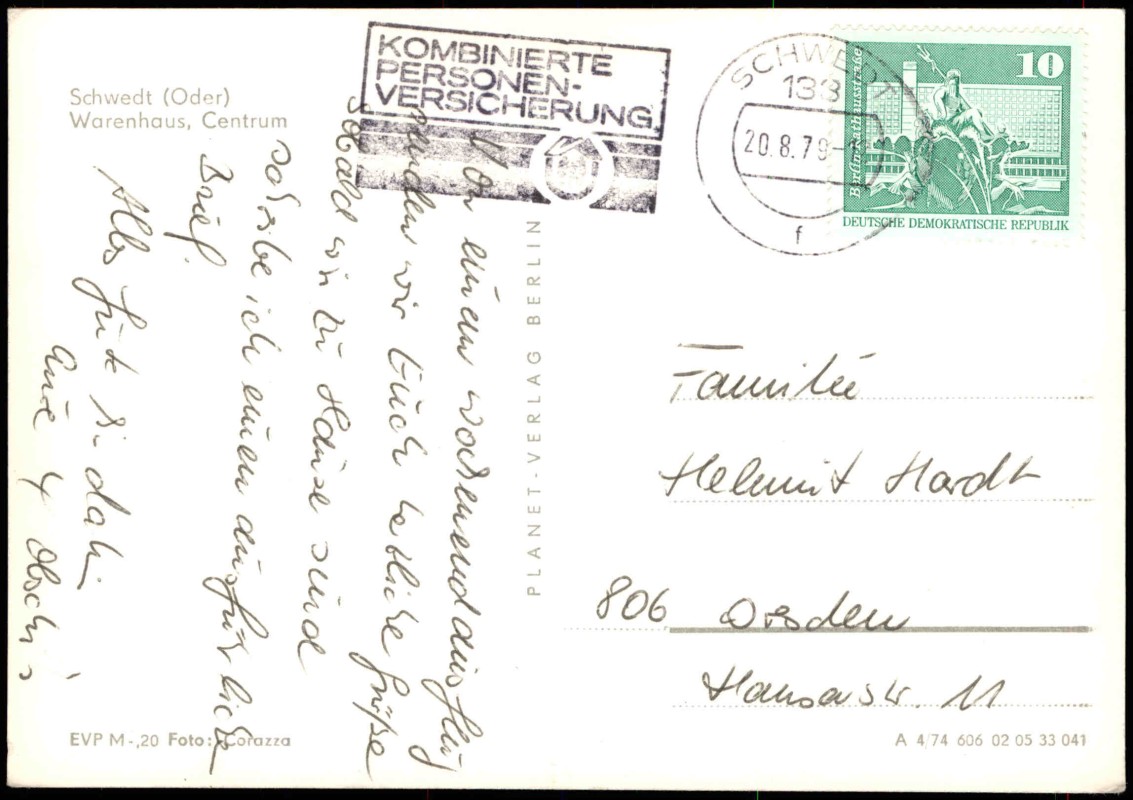 Schwedt (Oder)
Warenhaus, Centrum
KOMBINIERTE
PERSONEN-
VERSICHERUNG
SCHWEDT
133
20.8.79
f
10
Berlin Rathausstraße
DEUTSCHE DEMOKRATISCHE REPUBLIK
Von einem Wochenendausflug
senden wir Euch herzliche Grüße
Sobald wir zu Hause sind
schreibe ich einen ausführlichen
Brief.
Alles Gute
Eure
PLANET-VERLAG BERLIN
Familie
Helmut Hardt
806 Dresden
Hansastr. 11
EVP M -,20 Foto: Corazza
A 4/74 606 02 05 33 041